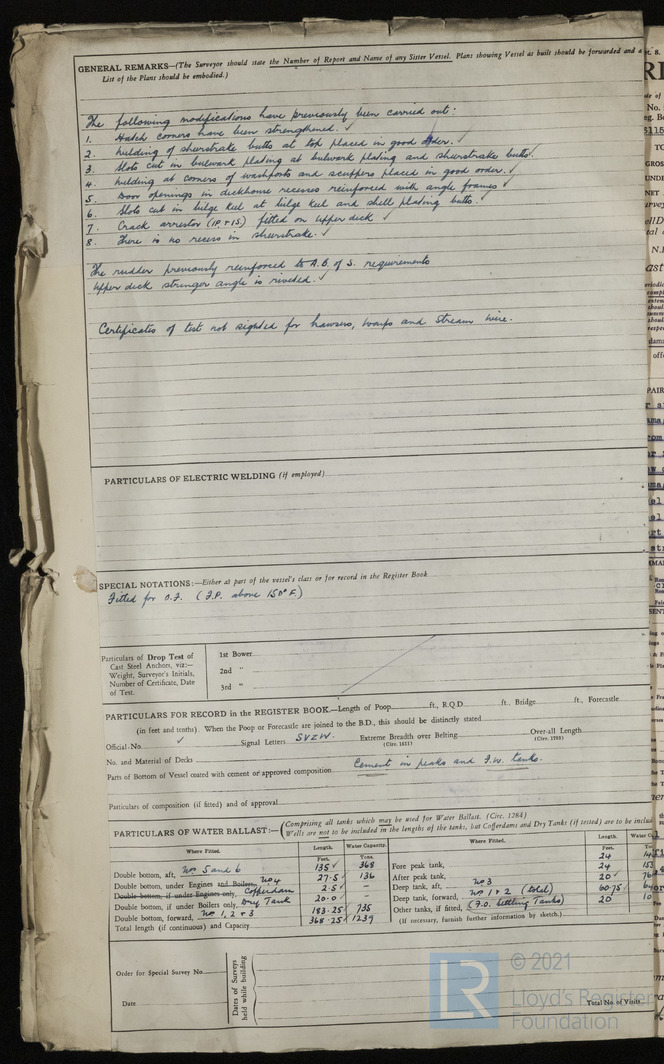 GENERAL REMARKS—(The Surveyor should state the Number of Report and Name of any Sister Vessel. Plans showing Vessel as built should be forwarded and a
List of the Plans should be embodied.)
The following modifications have previously been carried out:
1. Hatch corners have been strengthened. ✓
2. Welding of sheerstrake butts at top placed in good order. ✓
3. Slots cut in bulwark plating at bulwark plating and sheerstrake butts. ✓
4. Welding at corners of washports and scuppers placed in good order. ✓
5. Door openings in deckhouse recesses reinforced with angle frames ✓
6. Slots cut in bilge keel at bilge keel and shell plating butts. ✓
7. Crack arrestor (1P. + 1S) fitted on upper deck ✓
8. There is no recess in sheerstrake. ✓
The rudder previously reinforced to A.B. of S. requirements
Upper deck stringer angle is riveted. ✓
Certificates of test not sighted for hawsers, warps and stream wire.
PARTICULARS OF ELECTRIC WELDING (if employed)
SPECIAL NOTATIONS:—Either at part of the vessel's class or for record in the Register Book
Fitted for O.F. (F.P. above 150° F.)
Particulars of Drop Test of Cast Steel Anchors, viz:— Weight, Surveyor's Initials, Number of Certificate, Date of Test.
1st Bower
2nd "
3rd "
PARTICULARS FOR RECORD in the REGISTER BOOK.—Length of Poop ft., R.Q.D ft., Bridge ft., Forecastle
(in feet and tenths). When the Poop or Forecastle are joined to the B.D., this should be distinctly stated
Official No. ✓ Signal Letters SVZW. Extreme Breadth over Belting (Circ. 1611) Over-all Length (Circ. 1703)
No. and Material of Decks
Parts of Bottom of Vessel coated with cement or approved composition Cement in peaks and F.W. tanks.
Particulars of composition (if fitted) and of approval
PARTICULARS OF WATER BALLAST:—(Comprising all tanks which may be used for Water Ballast. (Circ. 1284)
Wells are not to be included in the lengths of the tanks, but Cofferdams and Dry Tanks (if tested) are to be inclu
Where Fitted. Length. Water Capacity. Where Fitted. Length.
Feet. Tons. Feet.
Double bottom, aft, Nos 5 and 6 135 ✓ 368 Fore peak tank, 24
Double bottom, under Engines and Boilers, No 4 27.5 ✓ 136 After peak tank, 24
Double bottom, if under Engines only, Cofferdam 2.5 ✓ – Deep tank, aft, No 3 20 ✓
Double bottom, if under Boilers only, Dry Tank 20.0 ✓ – Deep tank, forward, Nos 1 + 2 (total) 60.75 ✓
Double bottom, forward, Nos 1, 2 + 3 183.25 ✓ 735 Other tanks, if fitted, (F.O. Settling Tanks) 20
Total length (if continuous) and Capacity 368.25 ✓ 1239 (If necessary, furnish further information by sketch.)
Order for Special Survey No.
Date
Dates of Surveys held while building
Total No. of Visits
LR
© 2021
Lloyd's Register
Foundation